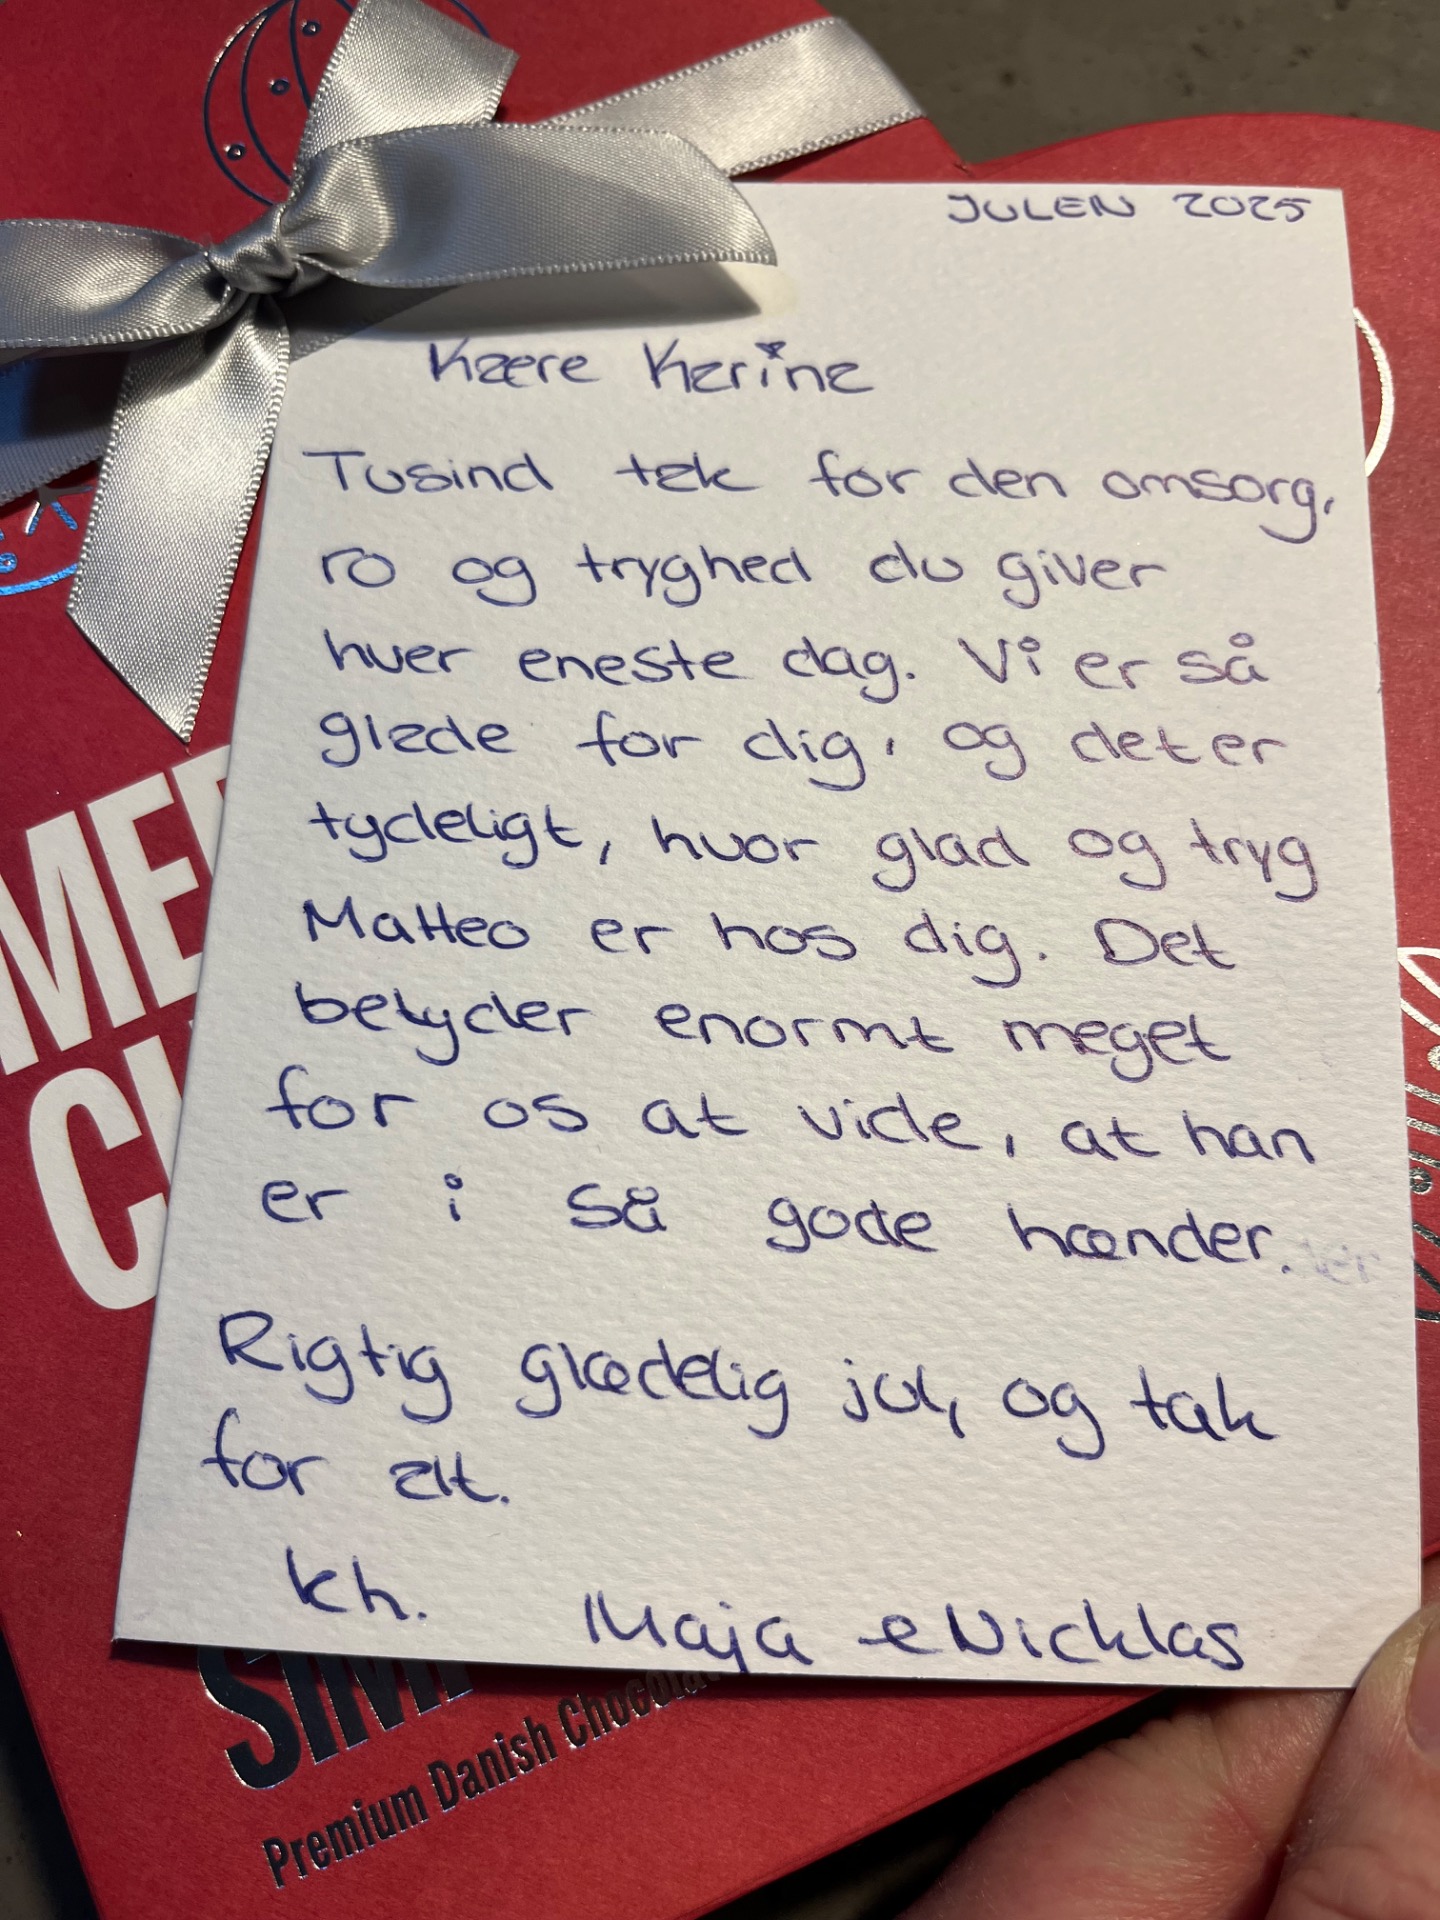 JULEN 2025
Kære Karina
Tusind tak for den omsorg,
ro og tryghed du giver
hver eneste dag. Vi er så
glade for dig, og det er
tydeligt, hvor glad og tryg
Matteo er hos dig. Det
betyder enormt meget
for os at vide, at han
er i så gode hænder.
Rigtig glædelig jul, og tak
for alt.
kh. Maja & Nicklas
Premium Danish